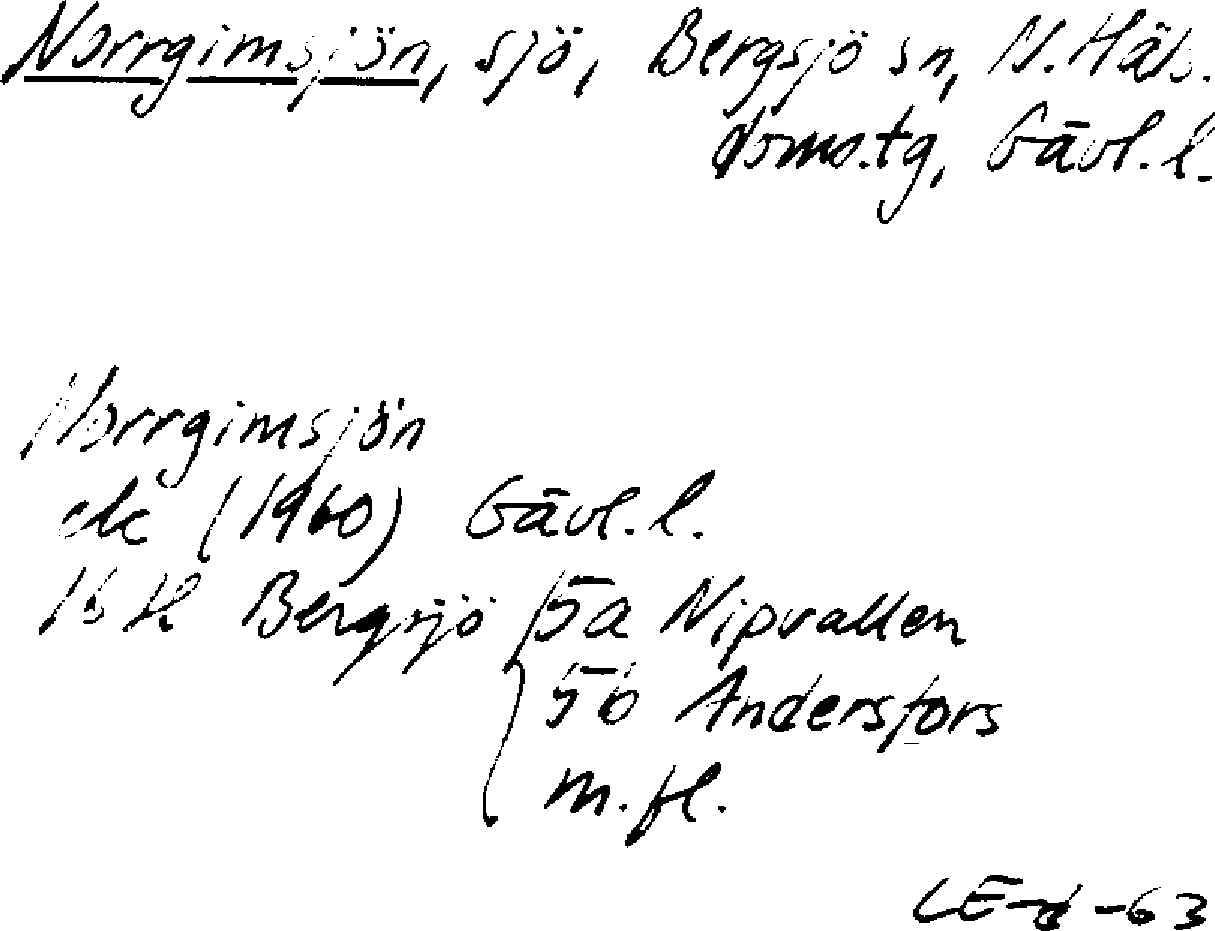 Norrgimsjön, sjö, Bergsjö sn, N. Häls.
doms.tg, Gävl. l.
Norrgimsjön
ek (1960) Gävl. l.
16 H Bergsjö 5a Nipvallen
5b Andersfors
m. fl.
-63